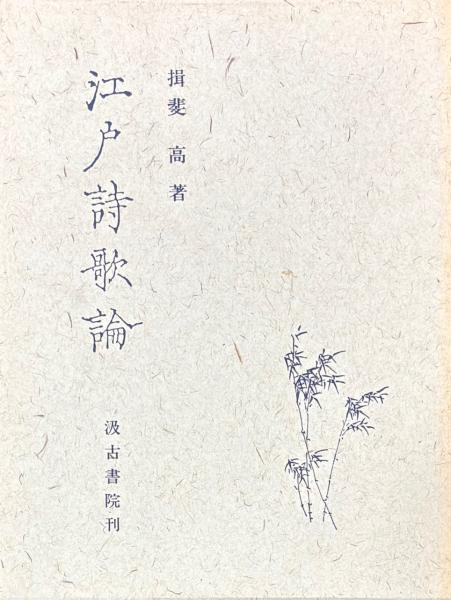 揖斐 高 著
江戸詩歌論
汲古書院刊